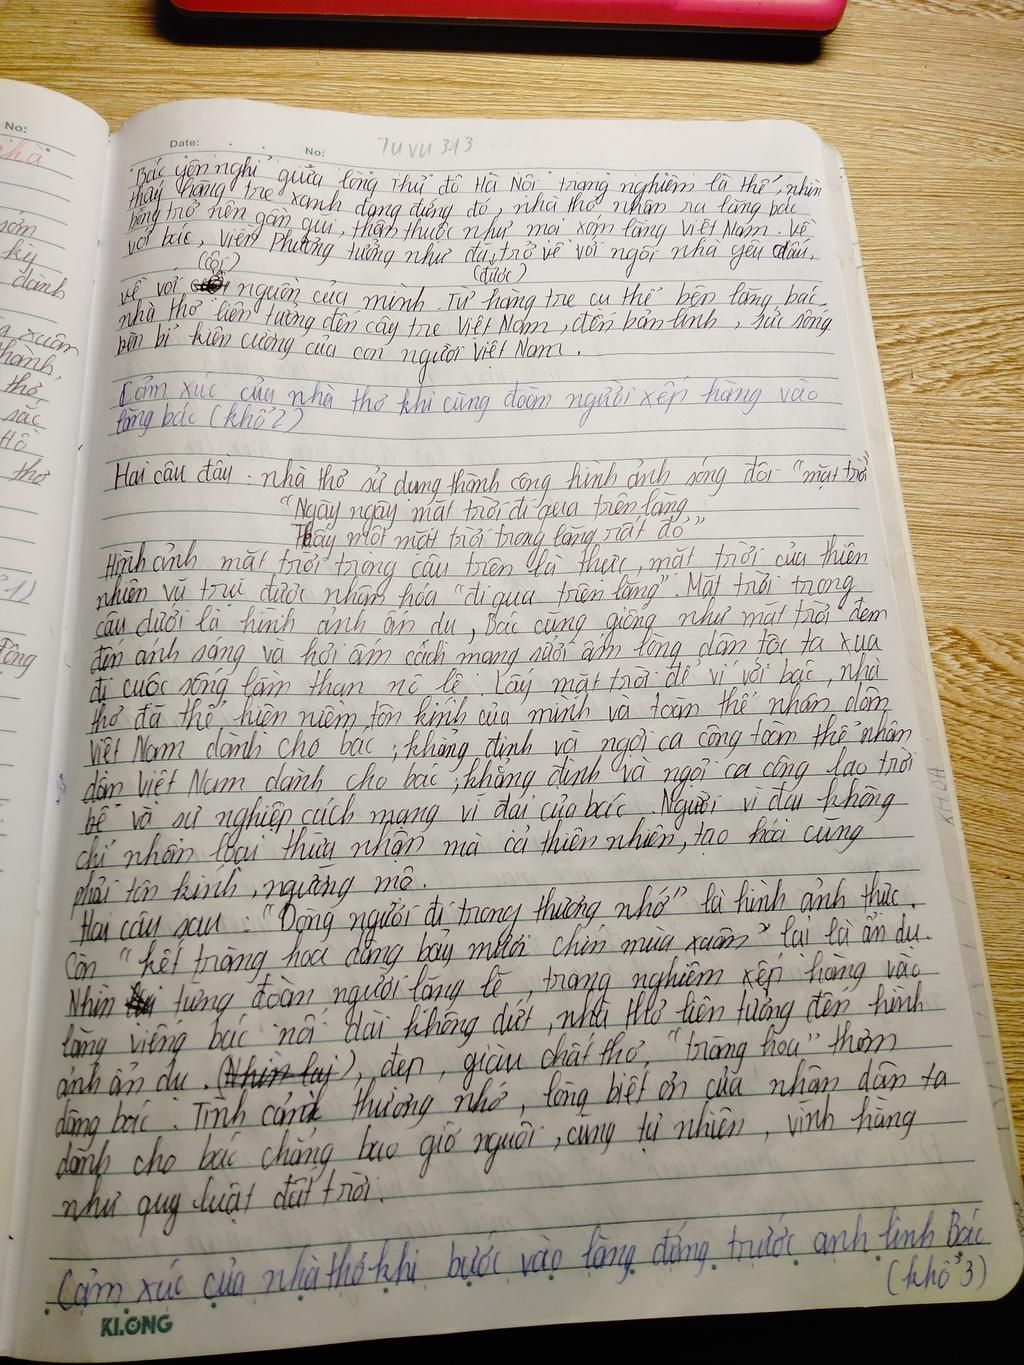 No:
Date: . . No: TUVU313
Bác yên nghỉ giữa lòng Thủ đô Hà Nội trang nghiêm là thế, nhìn
thấy hàng tre xanh đang đứng đó, nhà thơ nhận ra lăng bác
bỗng trở nên gần gũi, thân thuộc như mọi xóm làng Việt Nam. Về
với bác, Viễn Phương tưởng như đã trở về với ngôi nhà yêu dấu,
(cội) (được)
về với nguồn của mình. Từ hàng tre cụ thể bên lăng bác
nhà thơ liên tưởng đến cây tre Việt Nam, đến bản lĩnh, sức sống
bền bỉ kiên cường của con người Việt Nam.
Cảm xúc của nhà thơ khi cùng đoàn người xếp hàng vào
lăng bác (khổ 2)
Hai câu đầu: nhà thơ sử dụng thành công hình ảnh sóng đôi "mặt trời"
"Ngày ngày mặt trời đi qua trên lăng
Thấy một mặt trời trong lăng rất đỏ"
Hình ảnh mặt trời trong câu trên là thực, mặt trời của thiên
nhiên vũ trụ được nhân hóa "đi qua trên lăng". Mặt trời trong
câu dưới là hình ảnh ẩn dụ, Bác cũng giống như mặt trời đem
đến ánh sáng và hơi ấm cách mạng sưởi ấm lòng dân tộc ta xua
đi cuộc sống lầm than nô lệ. Lấy mặt trời để ví với bác, nhà
thơ đã thể hiện niềm tôn kính của mình và toàn thể nhân dân
Việt Nam dành cho bác, khẳng định và ngợi ca công toàn thể nhân
dân Việt Nam dành cho bác, khẳng định và ngợi ca công lao trời
bể và sự nghiệp cách mạng vĩ đại của bác. Người vĩ đại không
chỉ nhân loại thừa nhận mà cả thiên nhiên, tạo hóa cũng
phải tôn kính, ngưỡng mộ.
Hai câu sau: "Dòng người đi trong thương nhớ" là hình ảnh thực.
Còn "kết tràng hoa dâng bảy mươi chín mùa xuân" lại là ẩn dụ.
Nhìn từng đoàn người lặng lẽ, trang nghiêm xếp hàng vào
lăng viếng bác nối dài không dứt, nhà thơ liên tưởng đến hình
ảnh ẩn dụ. (Nhìn lại), đẹp, giàu chất thơ, "tràng hoa" thơm
dâng bác. Tình cảm thương nhớ, lòng biết ơn của nhân dân ta
dành cho bác chẳng bao giờ nguôi, cũng tự nhiên, vĩnh hằng
như quy luật đất trời.
Cảm xúc của nhà thơ khi bước vào lăng đứng trước anh linh Bác
(khổ 3)
KLONG